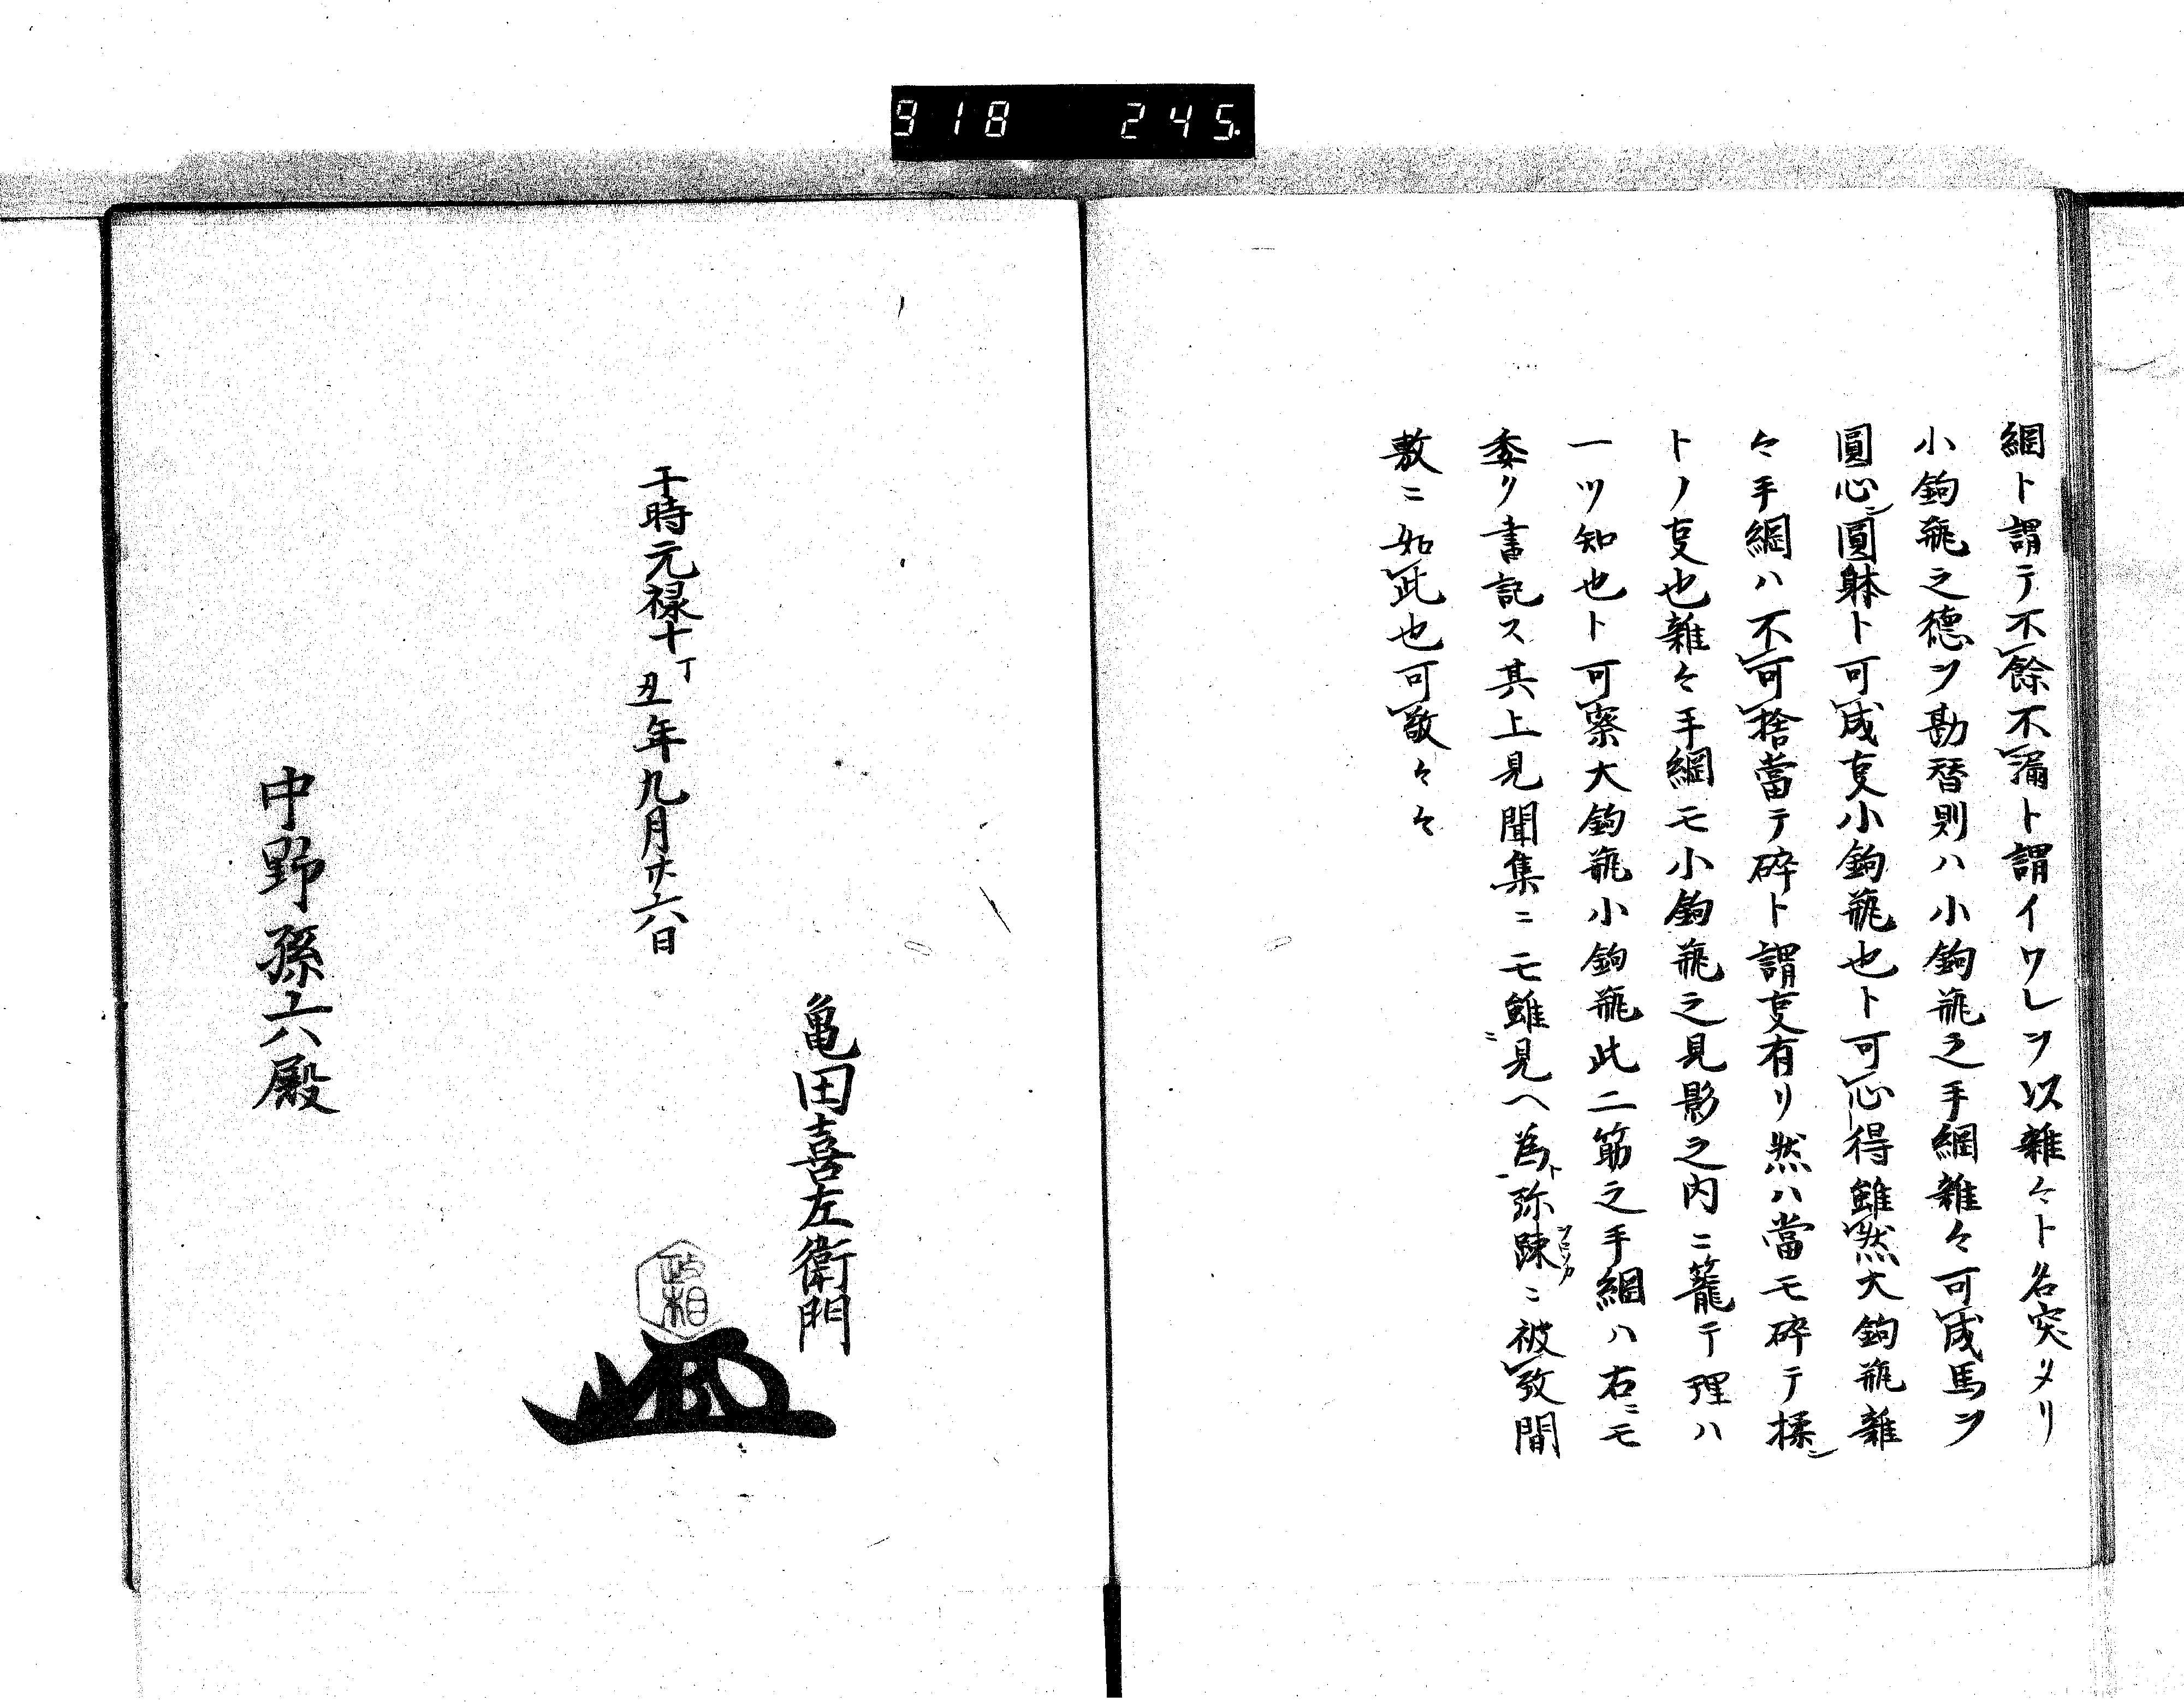 918 245.
網ト謂テ不餘不漏ト謂イワレヲ以雑々ト名突メリ
小鉤瓶之徳ヲ勘替則ハ小鉤瓶之手綱雑々可成馬ヲ
圓心圓躰ト可成叓小鉤瓶也ト可心得雖然大鉤瓶雑
々手綱ハ不可捨當テ碎ト謂叓有リ然ハ當モ碎テ揉
トノ叓也雑々手綱モ小鉤瓶之見影之内ニ籠テ理ハ
一ツ知也ト可案大鉤瓶小鉤瓶此二筋之手綱ハ右ニモ
委リ書記ス其上見聞集ニモ雖見ヘ為弥踈ニ被致間
敷ニ如此也可敬々々
亀田喜左衛門
政相
于時元禄十丁丑年九月廿六日
中野孫六殿